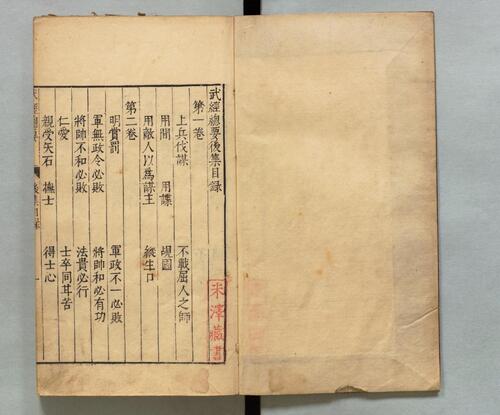 武經總要後集目錄
第一卷
上兵伐謀 不戰屈人之師
用間 用諜 覘國
用敵人以為謀主 縱生口
第二卷
明賞罰 軍政不一必敗
軍無政令必敗 將帥和必有功
將帥不和必敗 法貴必行
仁愛 士卒同甘苦
親受矢石 撫士 得士心
米澤藏書